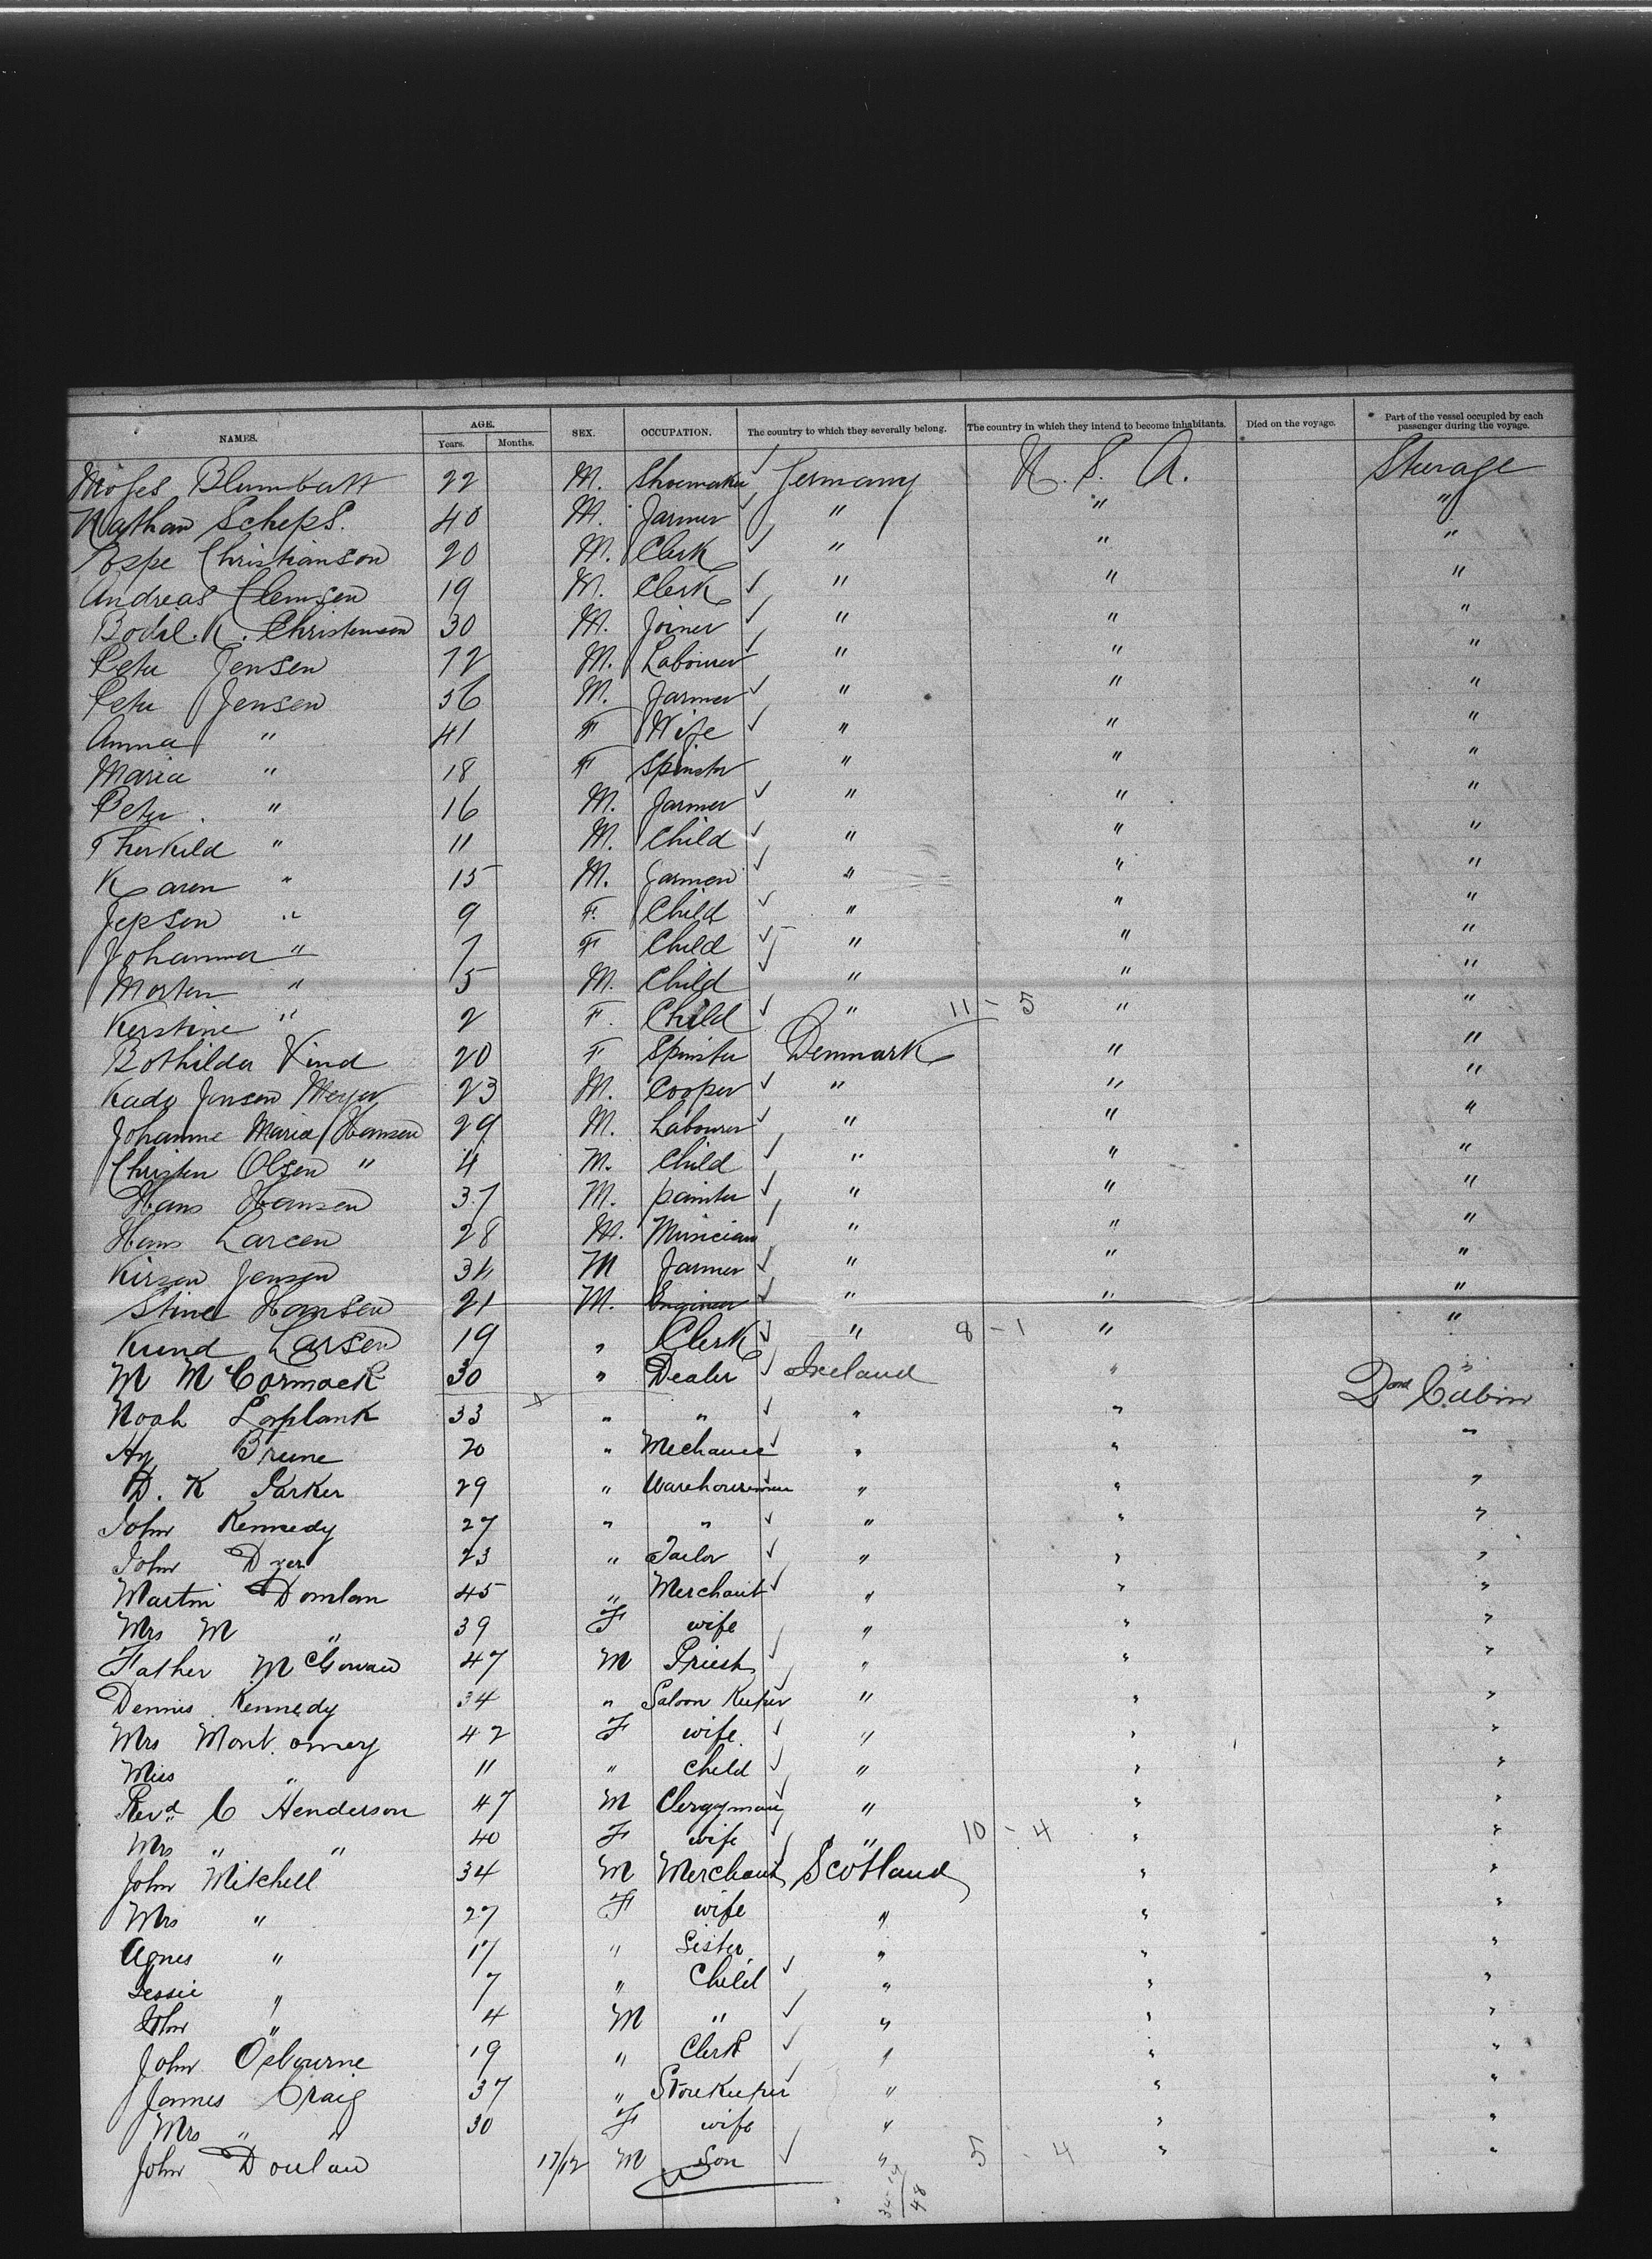 NAMES. AGE. Years. Months. SEX. OCCUPATION. The country to which they severally belong. The country in which they intend to become inhabitants. Died on the voyage. Part of the vessel occupied by each passenger during the voyage.
Moses Blumbatt 22 M. Shoemaker Germany U. S. A. Sterage
Nathan Scheps. 40 M. Farmer " " "
Christianson 20 M. Clerk " " "
Andreas Clemsen 19 M. Clerk " " "
Bodil. K. Christenson 30 M. Joiner " " "
Peter Jensen 72 M. Labourer " " "
Peter Jensen 56 M. Farmer " " "
Anna " 41 F Wife " " "
Maria " 18 F Spinster " " "
Peter " 16 M. Farmer " " "
Therkild " 11 M. Child " " "
Karen " 15 M. Farmer " " "
Jepson " 9 F. Child " " "
Johanna " 7 F Child " " "
Morten " 5 M. Child " " "
Kerstine " 2 F. Child " 11 - 5 " "
Bothilda Vind 20 F Spinster Denmark " "
Jensen Meyer 23 M. Cooper " " "
Johanne Maria Hansen 29 M. Labourer " " "
Christen Olsen " 4 M. Child " " "
Hans Hansen 37 M. painter " " "
Hans Larcen 28 M. Musician " " "
Kirzen Jensen 34 M Farmer " " "
Stine Hansen 21 M. Engineer " " "
Kund Larsen 19 " Clerk " 8 - 1 " "
M McCormack 30 " Dealer Ireland " "
2ond Cabin
Noah Lapplank 33 " " " "
Hy Brune 20 " Mechanic " " "
D. K Parker 29 " Warehouseman " " "
John Kennedy 27 " " " " "
John Dyer 23 " Tailor " " "
Martin Domlan 45 " Merchant " " "
Mrs M " 39 F wife " " "
Father McGowan 47 M Priest " " "
Dennis Kennedy 34 " Saloon Keeper " " "
Mrs Mont omery 42 F wife " " "
Miss " 11 " child " " "
Revd C Henderson 47 M Clergyman " " "
Mrs " " 40 F wife " 10 - 4 " "
John Mitchell 34 M Merchant Scotland " "
Mrs " 27 F wife " " "
Agnes " 17 " Sister " " "
Jessie " 7 " Child " " "
John " 4 M " " " "
John Osbourne 19 " Clerk " " "
James Craig 37 " Storekeeper " " "
Mrs " " 30 F wife " " "
John Doulan 17/12 M Son " 5 - 4 " "
34-14
48